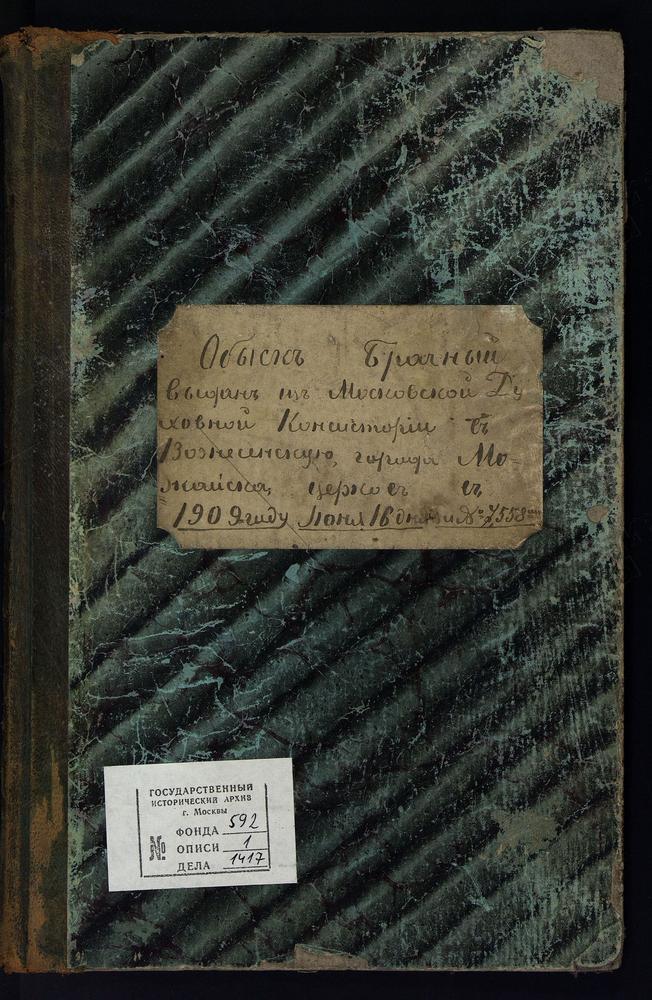 Обыскъ Брачный
выданъ изъ Московской Ду
ховной Консисторіи въ
Вознесенскую, города Мо-
жайска, церковь въ
1909 году Іюня 16 дня за № 7558
ГОСУДАРСТВЕННЫЙ
ИСТОРИЧЕСКИЙ АРХИВ
г. Москвы
№ ФОНДА 592
ОПИСИ 1
ДЕЛА 1417